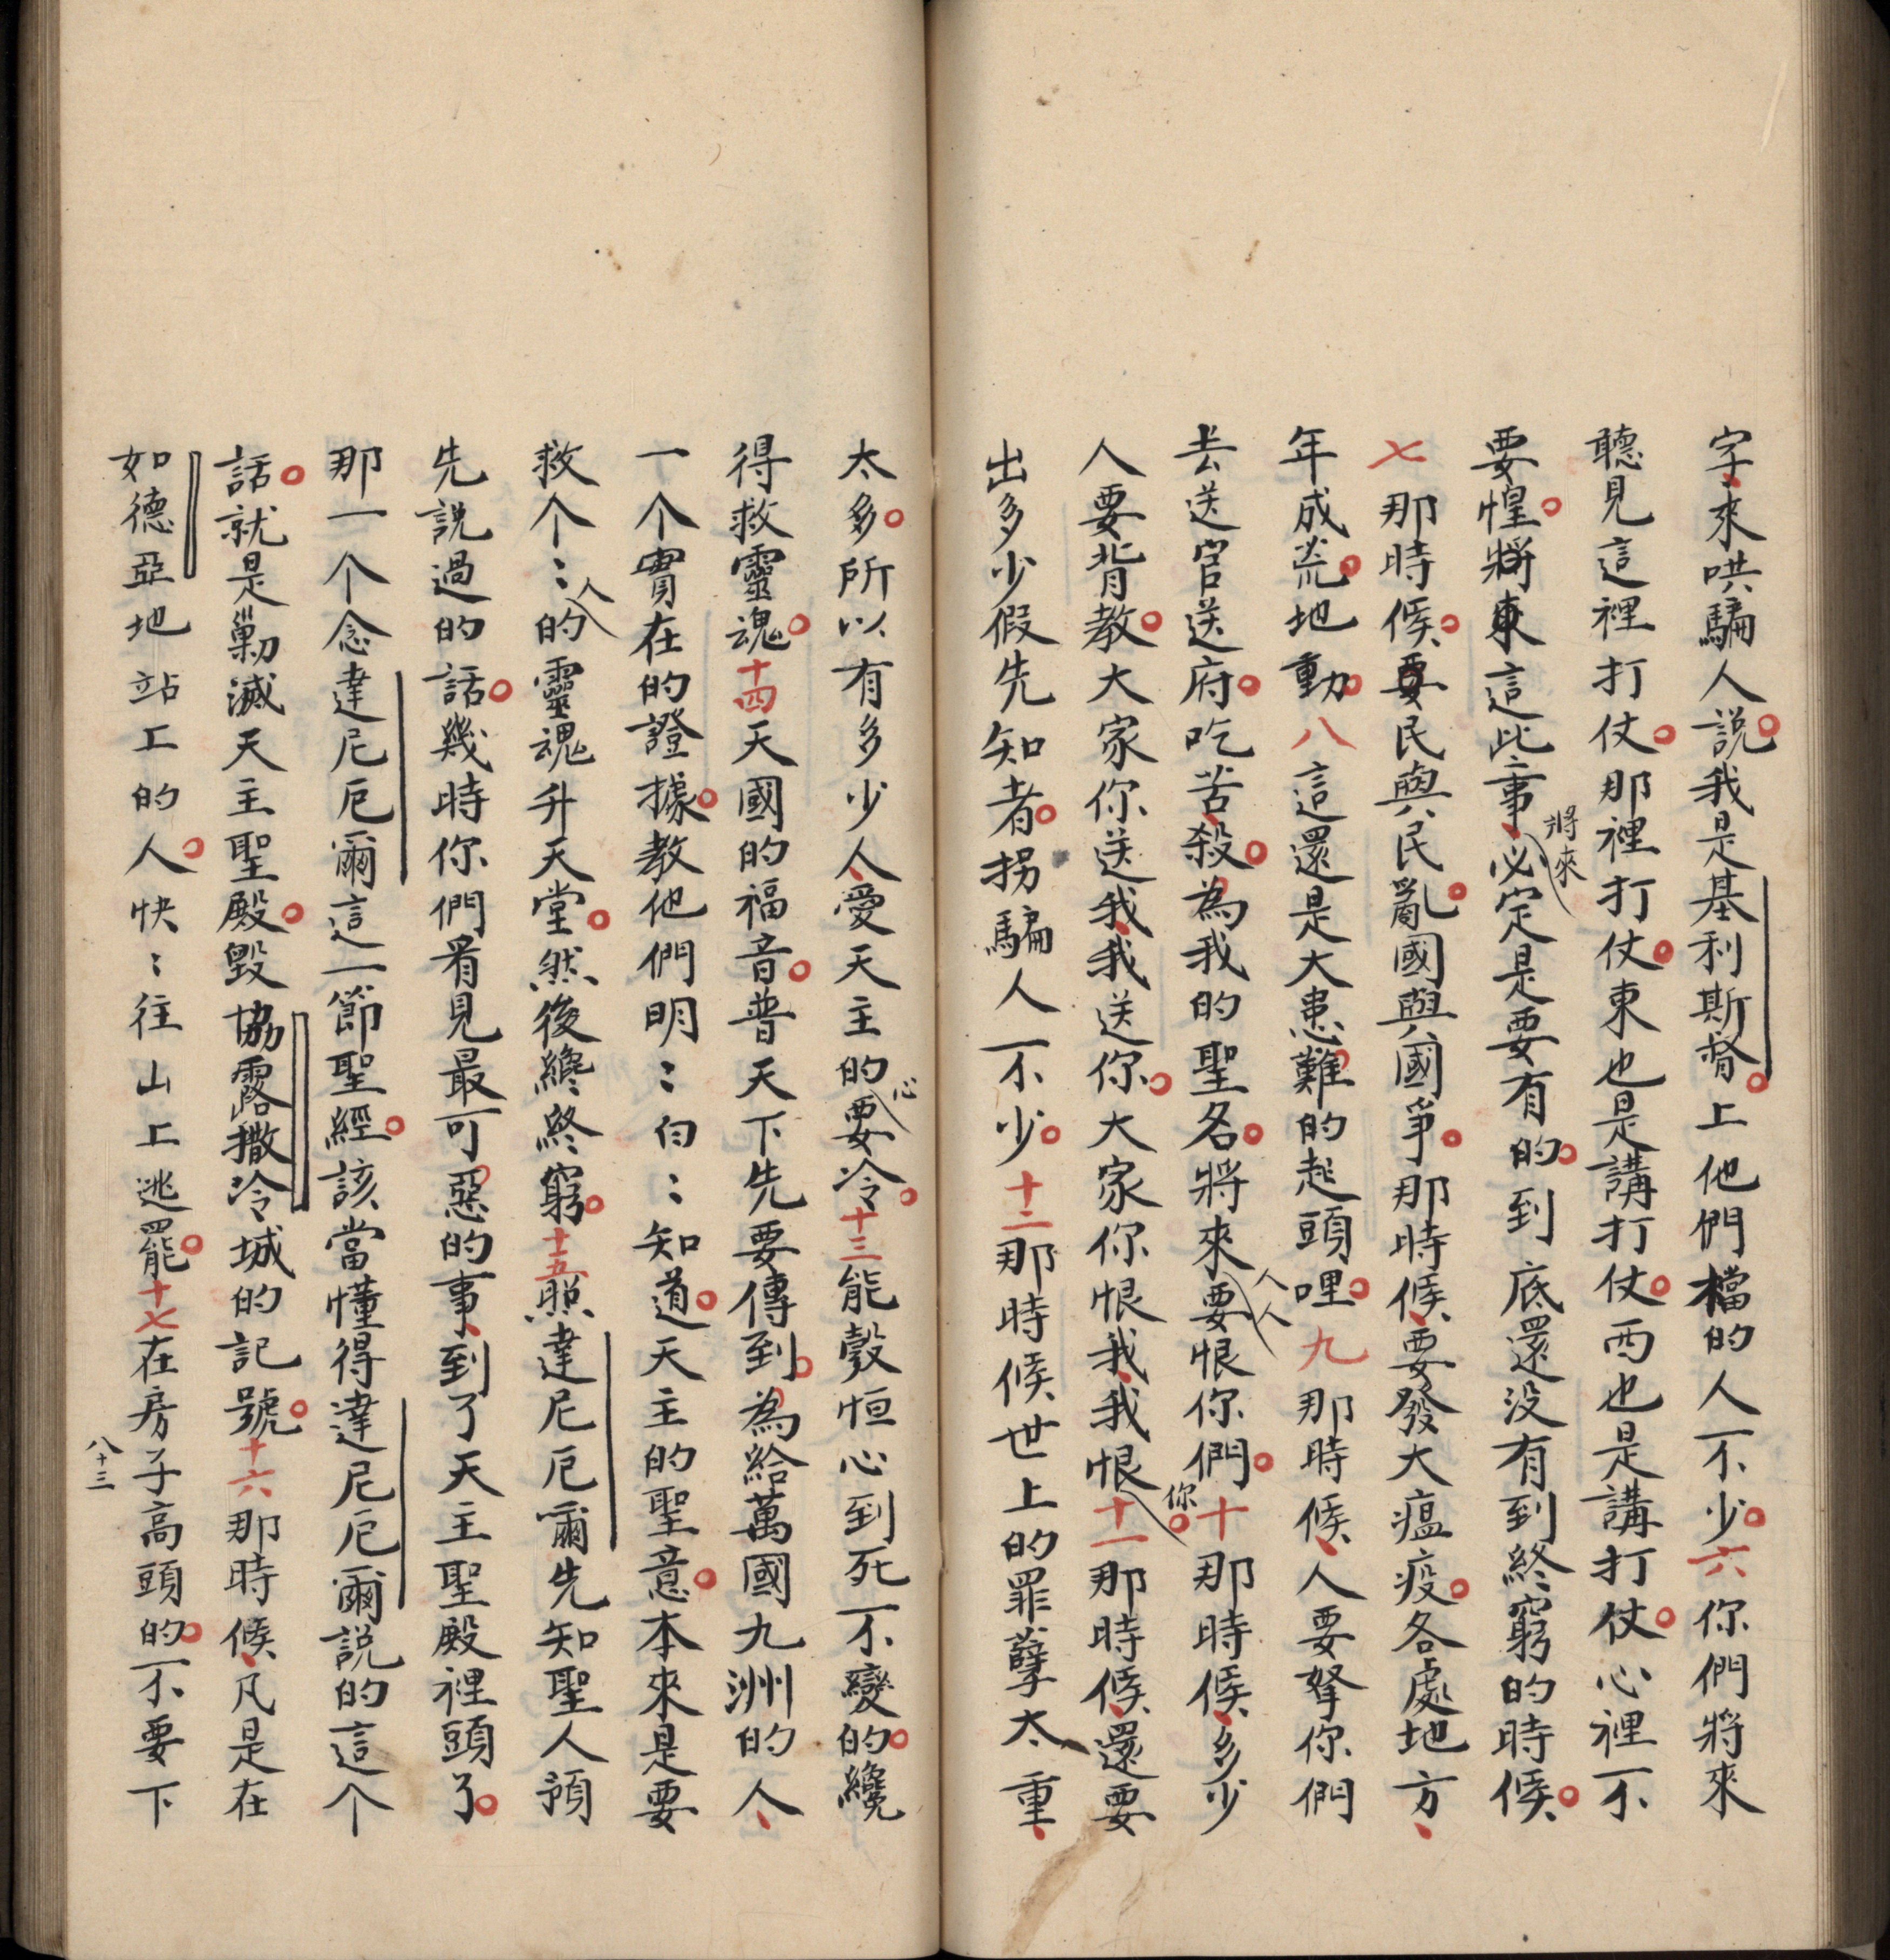 字、來哄騙人。說我是基利斯督。上他們檔的人不少。六你們將來
聽見這裡打仗。那裡打仗。東也是講打仗。西也是講打仗。心裡不
要惶。將來這此事、將來必定是要有的。到底還没有到終窮的時候。
七那時候。要民與民亂。國與國爭。那時候、要發大瘟疫。各處地方、
年成荒。地動。八這還是大患難的起頭哩。九那時候、人要拏你們
去送官送府。吃苦、殺。為我的聖名。將來人人要恨你們。十那時候、多少
人要背教。大家你送我、我送你。大家你恨我、我恨你。十一那時候、還要
出多少假先知者。拐騙人不少。十二那時候世上的罪孽太重、
太多。所以有多少人、愛天主的心要冷。十三能彀恒心到死不變的。纔
得救靈魂。十四天國的福音。普天下先要傳到。為給萬國九洲的人、
一个實在的證據。教他們明：白：知道。天主的聖意。本來是要
救个：人的靈魂升天堂。然後纔終窮。十五照達尼厄爾先知聖人預
先說過的話。幾時你們看見最可惡的事、到了天主聖殿裡頭了。
那一个念達尼厄爾這一節聖經。該當懂得達尼厄爾說的這个
話。就是剿滅天主聖殿。毀協露撒冷城的記號。十六那時候、凡是在
如德亞地站工的人。快：往山上逃罷。十七在房子高頭的。不要下
八十三